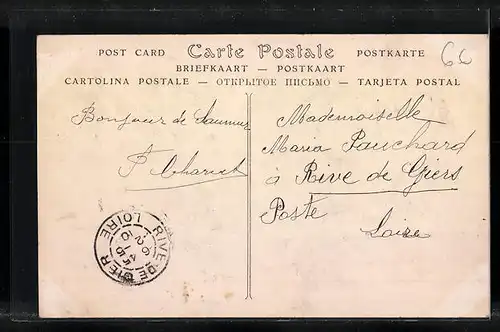 POST CARD Carte Postale POSTKARTE
BRIEFKAART — POSTKAART
CARTOLINA POSTALE — ОТКРЫТОЕ ПИСЬМО — TARJETA POSTAL
66
Bonjour de Saumur
Mademoiselle
Maria Pauchard
à Rive de Giers
Poste
Loire
RIVE-DE-GIER
LOIRE